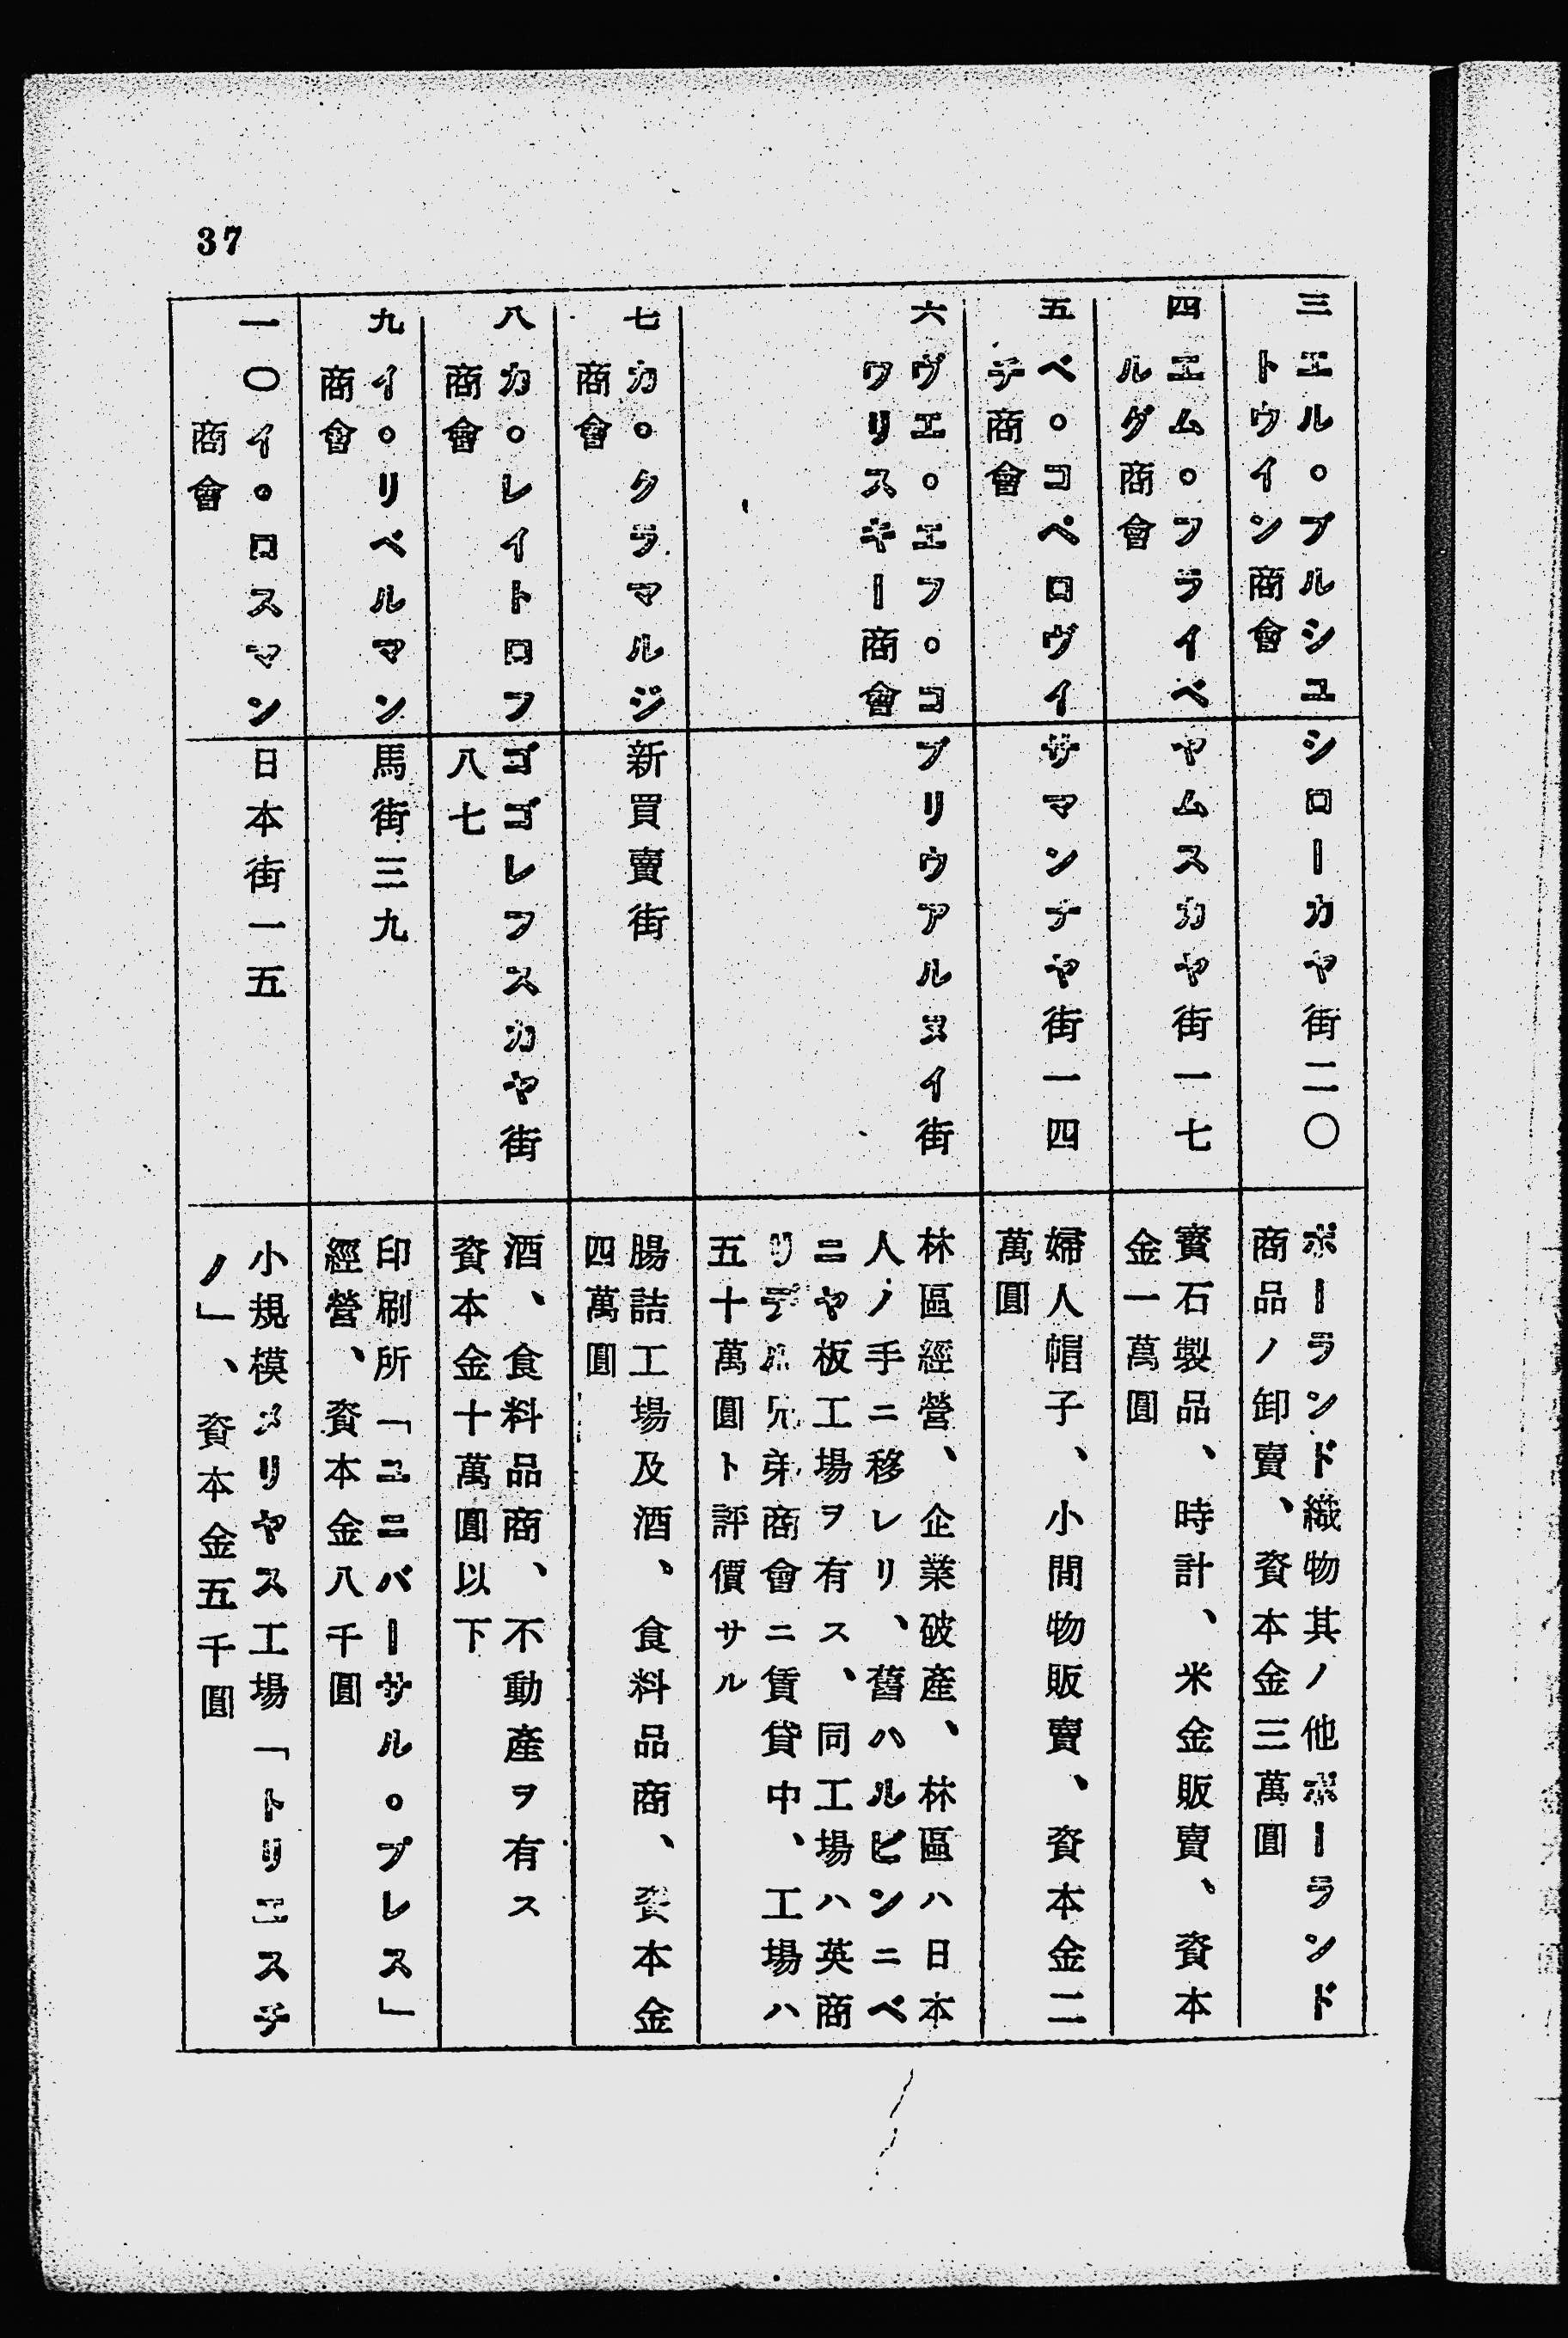 37
三 エル。ブルシユ
トウイン商會
シローカヤ街二〇
ポーランド織物其ノ他ポーランド
商品ノ卸賣、資本金三萬圓
四 エム。フライベ
ルグ商會
ヤムスカヤ街一七
寶石製品、時計、米金販賣、資本
金一萬圓
五 ペ。コペロヴイ
チ商會
サマンナヤ街一四
婦人帽子、小間物販賣、資本金二
萬圓
六 ヴエ。エフ。コ
ワリスキー商會
ブリウアルヌイ街
林區經營、企業破産、林區ハ日本
人ノ手ニ移レリ、舊ハルビンニベ
ニヤ板工場ヲ有ス、同工場ハ英商
リデル兄弟商會ニ賃貸中、工場ハ
五十萬圓ト評價サル
七 カ。クラマルジ
商會
新買賣街
腸詰工場及酒、食料品商、資本金
四萬圓
八 カ。レイトロフ
商會
ゴゴレフスカヤ街
八七
酒、食料品商、不動産ヲ有ス
資本金十萬圓以下
九 イ。リベルマン
商會
馬街三九
印刷所「ユニバーサル。プレス」
經營、資本金八千圓
一〇 イ。ロスマン
商會
日本街一五
小規模メリヤス工場「トリエスチ
ノ」、資本金五千圓